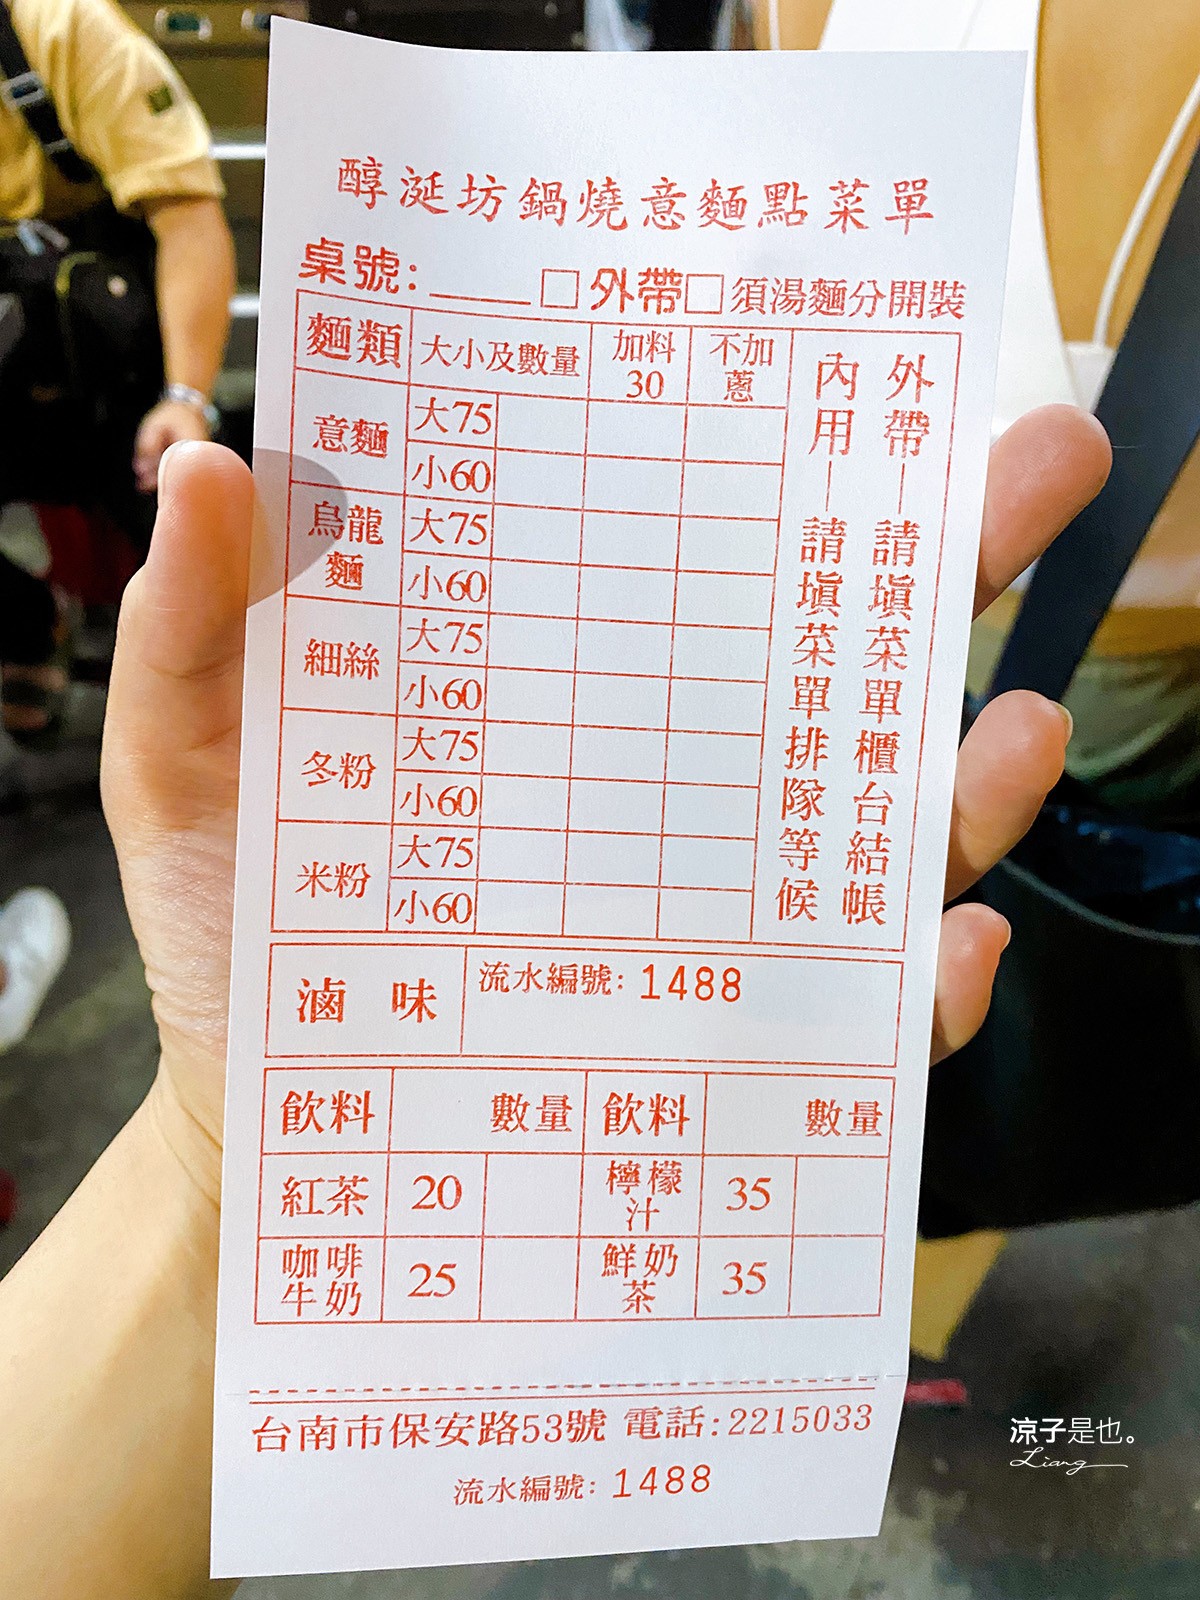 醇涎坊鍋燒意麵點菜單
桌號: ____ □ 外帶 □ 須湯麵分開裝
麵類 大小及數量 加料30 不加蔥
意麵 大75
小60
烏龍麵 大75
小60
細絲 大75
小60
冬粉 大75
小60
米粉 大75
小60
外帶—請填菜單櫃台結帳
內用—請填菜單排隊等候
滷味 流水編號: 1488
飲料 數量 飲料 數量
紅茶 20 檸檬汁 35
咖啡牛奶 25 鮮奶茶 35
台南市保安路53號 電話:2215033
流水編號: 1488
涼子是也。
Liang